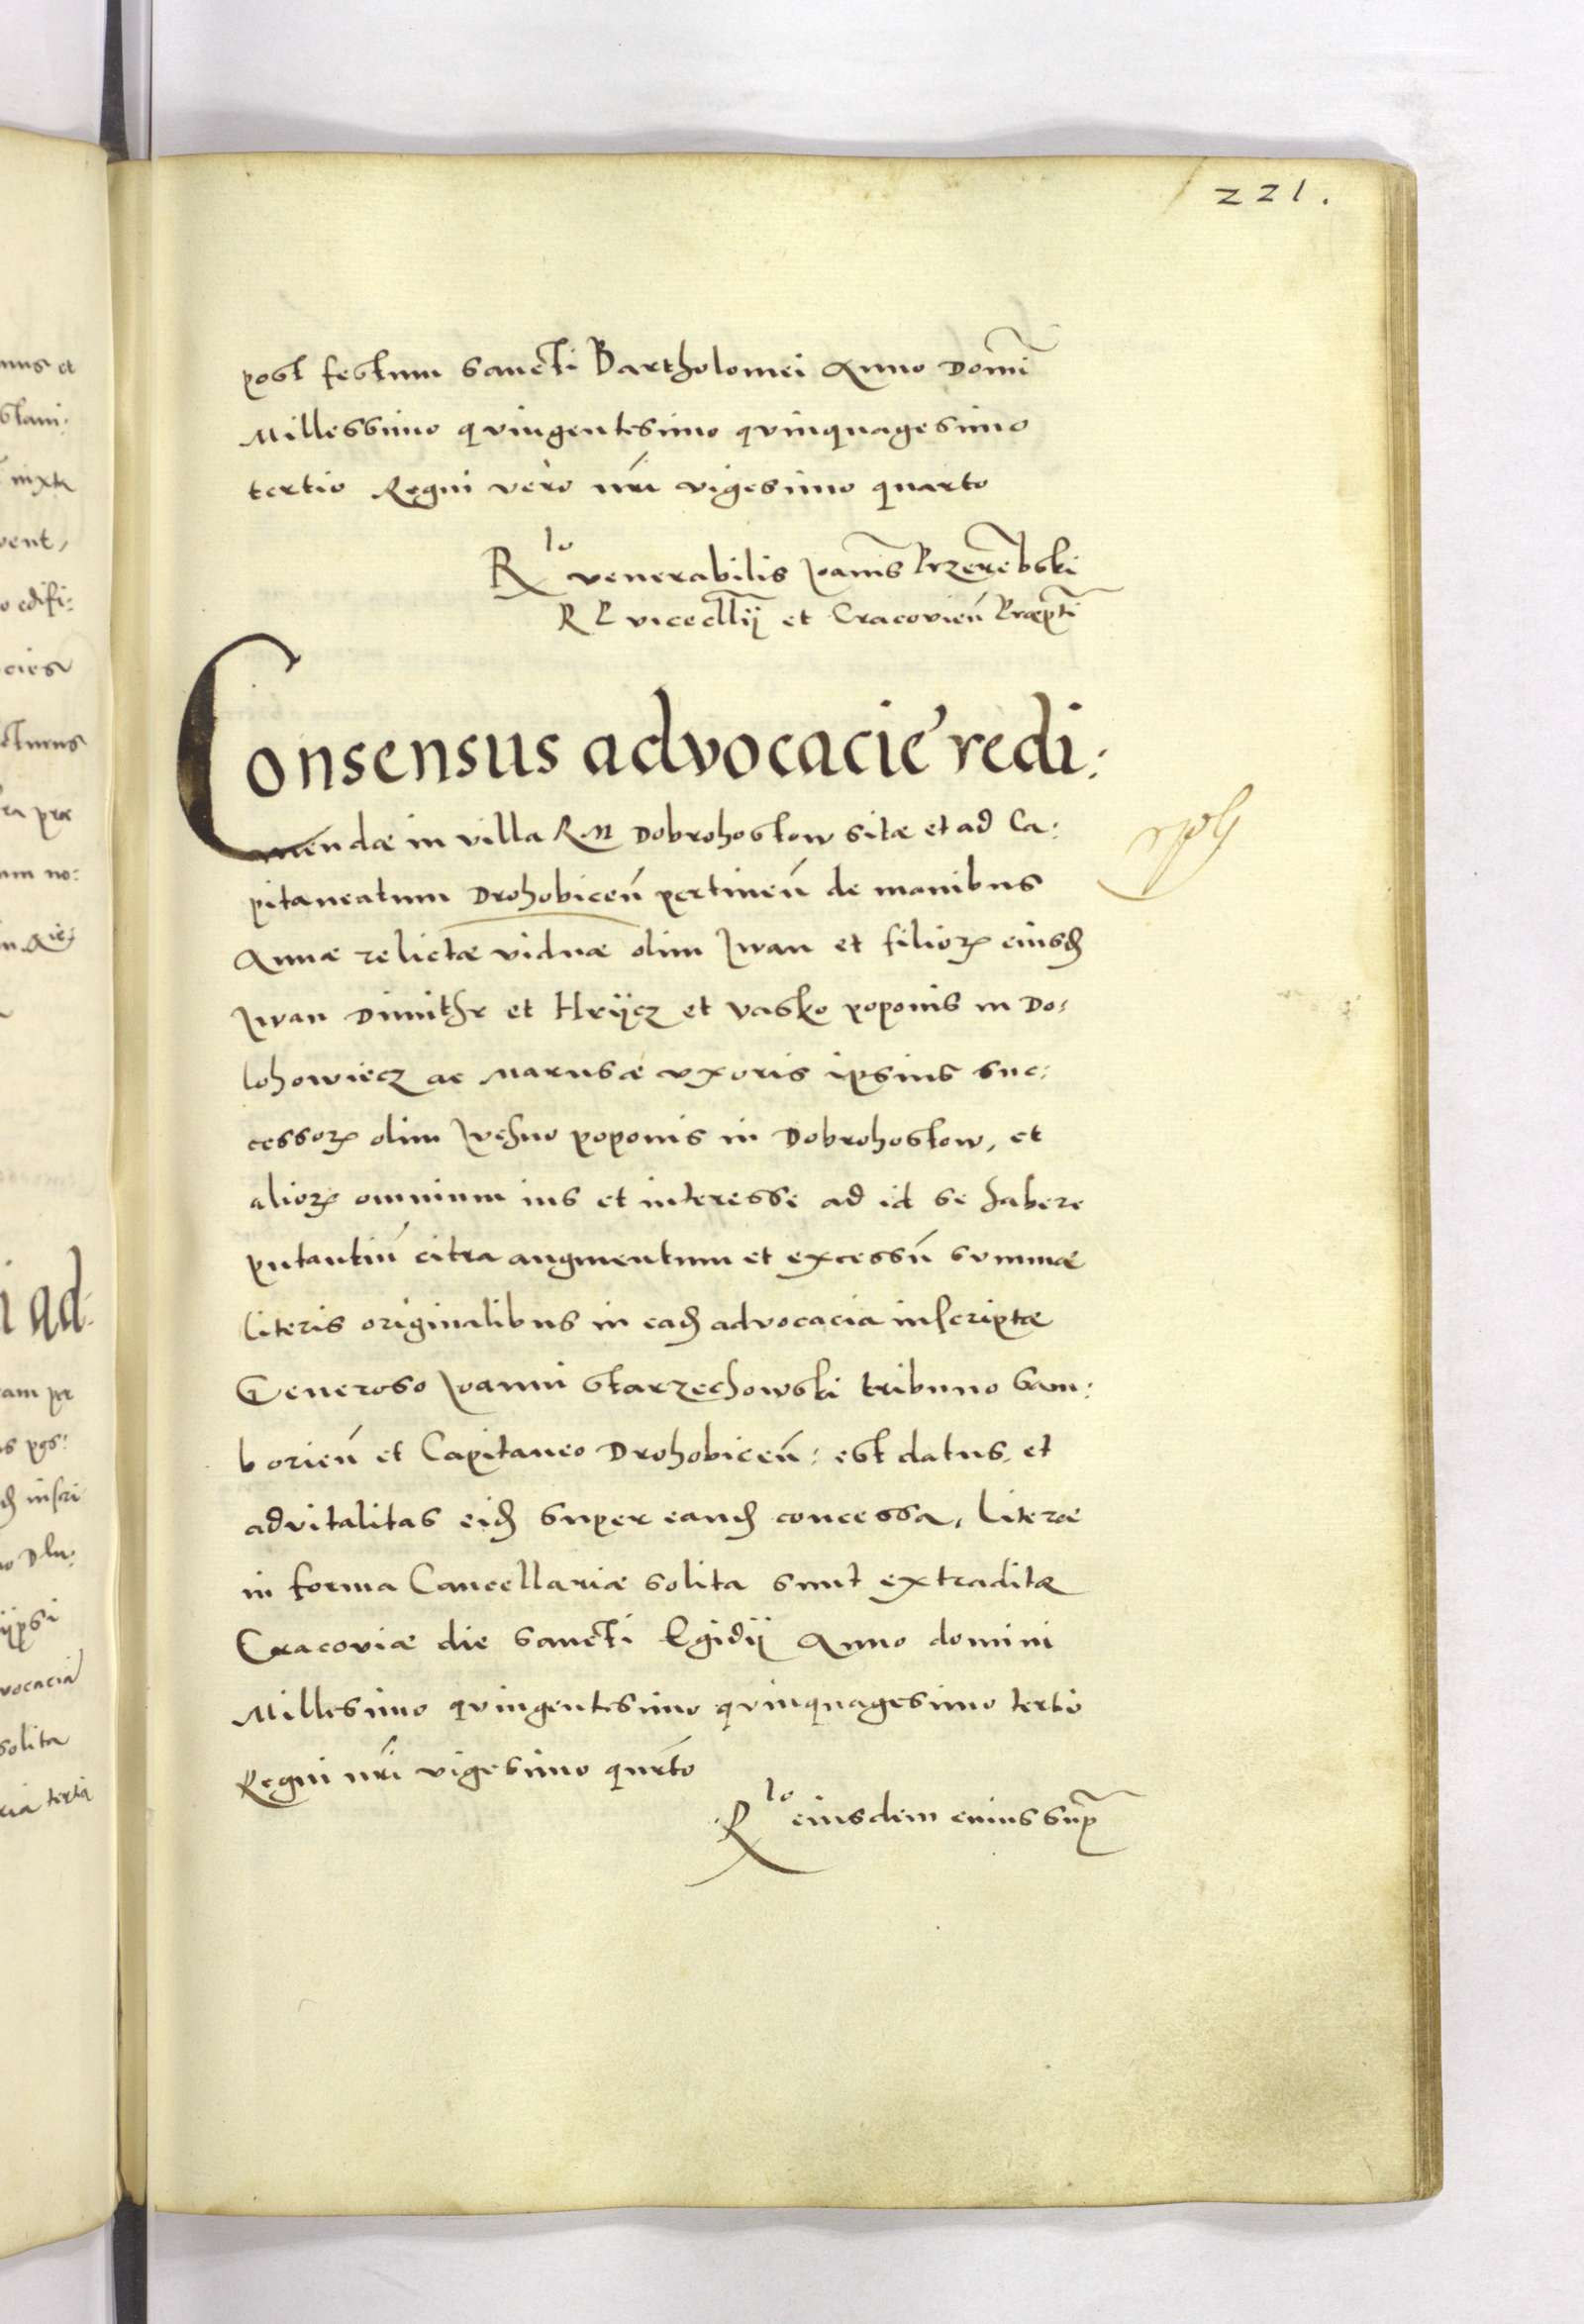 221.
post festum sancti Bartholomei Anno Domī
Millessimo qvingentesimo qvinquagesimo
tertio Regni vero nr̃i vigesimo quarto
R lo venerabilis Joanis Przerēbski
R P vicecllrij et Cracovieñ Præpti
Consensus advocacie redi:
mendæ in villa R M Dobrohostow sitæ et ad Ca:
pitaneatum Drohobiceñ pertineñ de manibus
Annæ relictæ viduæ olim Jwan et filioꝝ eiusđ
Jwan Dimithr et Hrÿcz et Vasko poponis in Do:
lohowiecz ac Marusæ uxoris ipsius suc:
cessoꝝ olim Jvehno poponis in Dobrohostow, et
alioꝝ omnium ius et interesse ad id se habere
putantiū citra augmentum et excessū summæ
literis originalibus in eađ advocacia inscriptæ
Generoso Joanni Starzechowski tribuno Sam:
borieñ et Capitaneo Drohobiceñ: est datus, et
advitalitas eiđ super eanđ concessa, literæ
in forma Cancellariæ solita sunt extraditæ
Cracoviæ die sancti Egidij Anno domini
Millesimo qvingentesimo qvinquagesimo tertio
Regni nr̃i vigesimo qurto
R lo eiusdem cuius sup̃